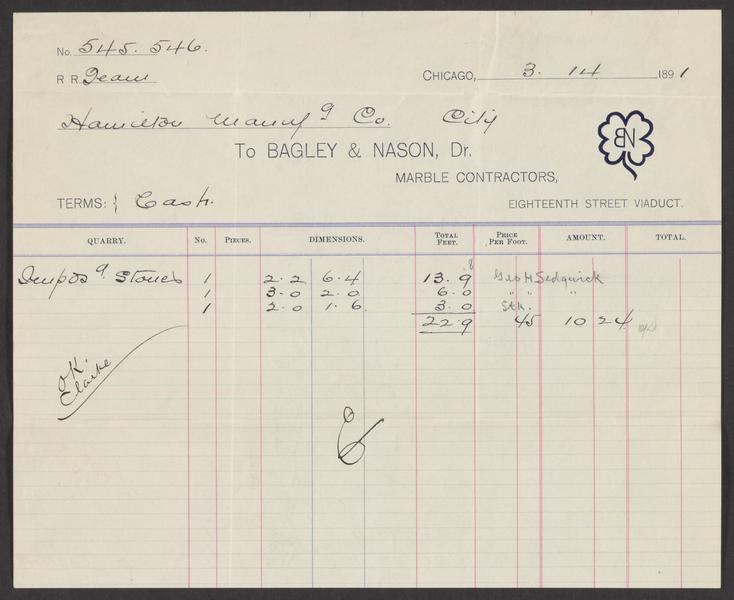 No. 545. 546.
R R. Team
CHICAGO, 3. 14 1891
Hamilton Manufg Co. City
To BAGLEY & NASON, Dr.
BN
MARBLE CONTRACTORS,
TERMS: Cash.
EIGHTEENTH STREET VIADUCT.
QUARRY. No. PIECES. DIMENSIONS. TOTAL FEET. PRICE PER FOOT. AMOUNT. TOTAL.
Imposg Stones 1 2.2 6.4 13.9 Geo H Sedgwick
1 3.0 2.0 6.0 " " "
1 2.0 1.6 3.0 Stk.
22.9 45 10 24
OK.
Clarke